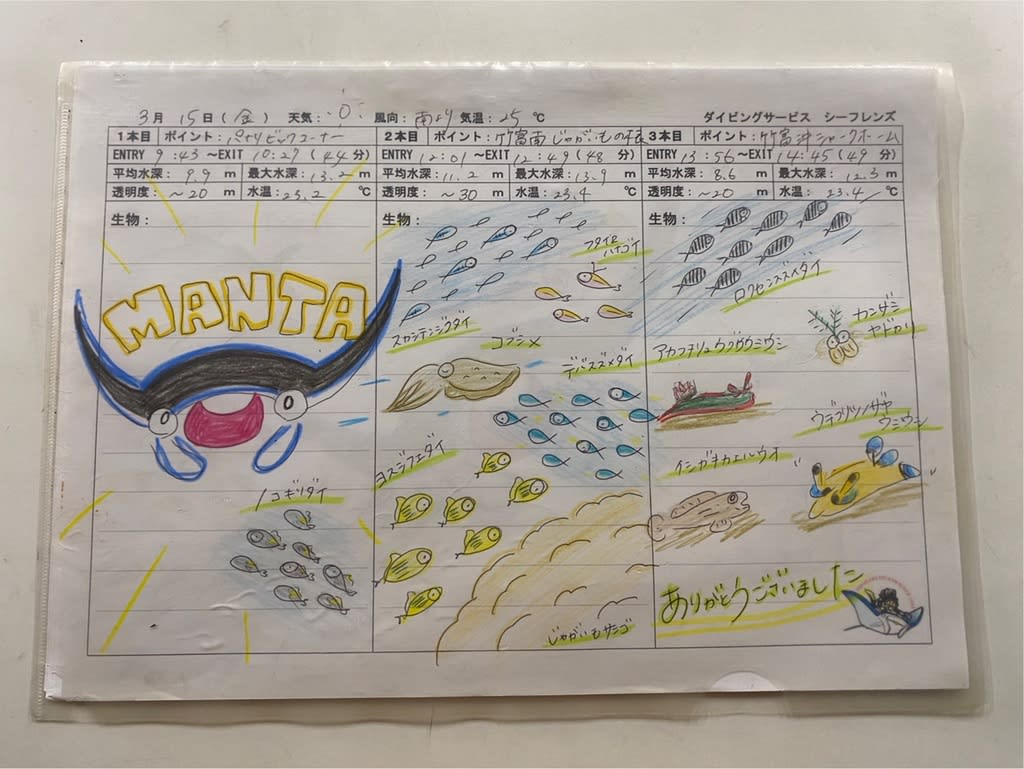 3月 15日(金) 天気: 風向: 南より 気温: 25 ℃ ダイビングサービス シーフレンズ
1本目 ポイント: ビッグコーナー
ENTRY 9:43 ～EXIT 10:27 (44分)
平均水深: 9.9 m 最大水深: 13.2 m
透明度: ～20 m 水温: 23.2 ℃
生物:
MANTA
ノコギリダイ
2本目 ポイント: 竹富南じゃがいもの根
ENTRY 12:01 ～EXIT 12:49 (48分)
平均水深: 11.2 m 最大水深: 13.9 m
透明度: ～30 m 水温: 23.4 ℃
生物:
フタイロ
ハナゴイ
スカシテンジクダイ
コブシメ
デバスズメダイ
ヨスジフエダイ
じゃがいもサンゴ
3本目 ポイント: 竹富沖シャークホーム
ENTRY 13:56 ～EXIT 14:45 (49分)
平均水深: 8.6 m 最大水深: 12.3 m
透明度: ～20 m 水温: 23.4 ℃
生物:
ロクセンスズメダイ
カンザシ
ヤドカリ
アカフチリュウグウウミウシ
ウデフリツノザヤ
ウミウシ
イシガキカエルウオ
ありがとうございました